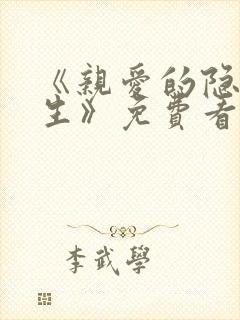 《親愛的隐
生》免費看
李武學